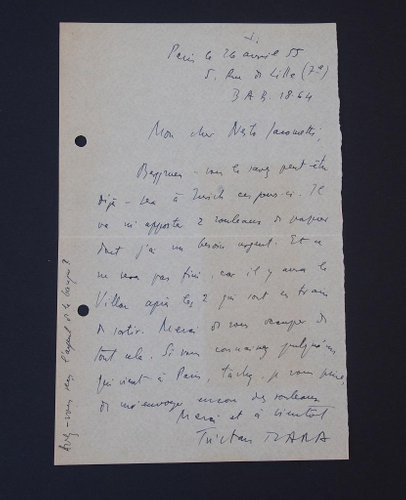 1.
Paris le 26 avril 55
5, Rue de Lille (7e)
BAB. 1864
Mon cher Nesto Jacometti,
— vous le savez peut-être
déjà — va à Zurich ces jours-ci. Il
va m'apporter 2 rouleaux de papier
dont j'ai un besoin urgent. Et ce
ne sera pas fini, car il y aura le
Villon après les 2 qui sont en train
de sortir. Merci de vous occuper de
tout cela. Si vous connaissez quelqu'un
qui vient à Paris, tâchez, je vous prie,
de m'envoyer encore des rouleaux
Merci et à bientôt
Tristan TZARA
Avez-vous eu l'argent de la banque?